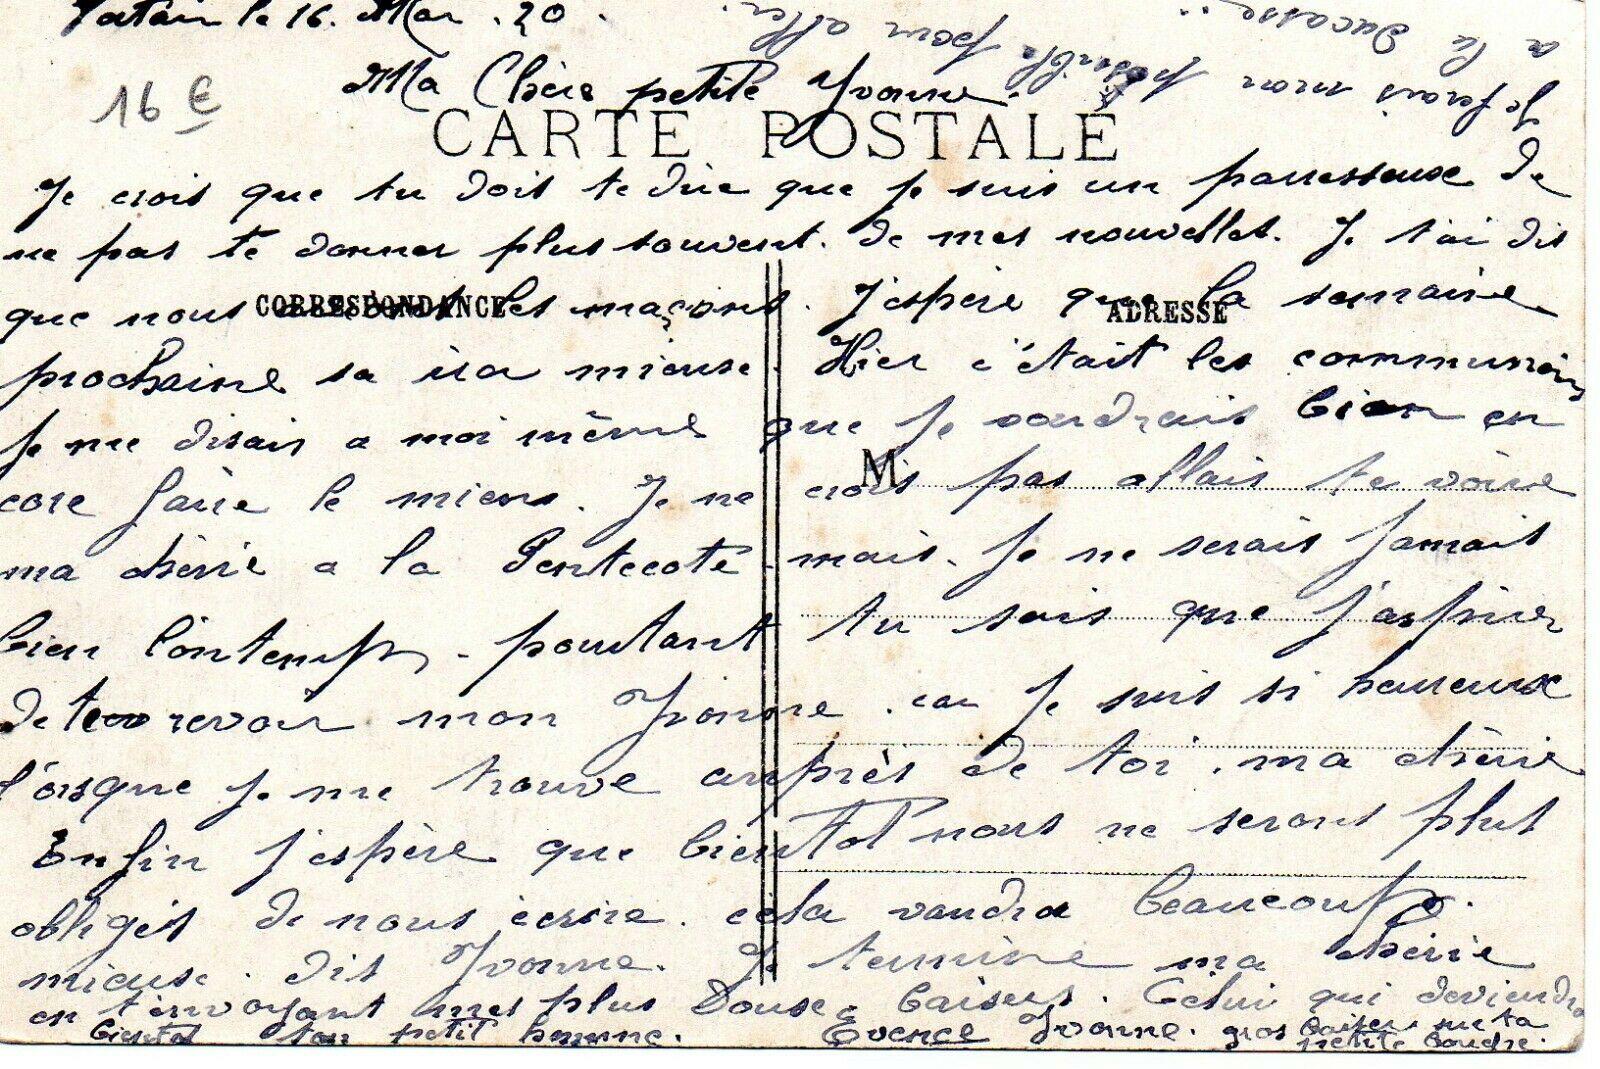 le 16. Mai. 20.
Ma Chère petite Yvonne.
16 €
CARTE POSTALE
Je crois que tu dois te dire que je suis un paresseuse de
ne pas te donner plus souvent. de mes nouvelles. Je t'ai dis
que nous les maçons. J'espère que la semaine
CORRESPONDANCE
ADRESSE
prochaine sa ira mieuse. Hier c'était les communions
Je me disais a moi même que je voudrais bien en
core faire le miens. Je ne crois pas allais te voire
M
ma chérie a la Pentecote. mais. Je ne serais Jamais
bien lontemps. pourtant tu sais que j'aspire
de te revoir mon Yvonne. car je suis si heureuse
l'orsque je me trouve auprès de toi. ma chérie
Enfin j'espère que bientot nous ne serons plus
obliges de nous écrire. cela vaudra beaucoup.
mieuse. dit Yvonne. Je termine ma chérie
en t'envoyant mes plus Douse baisers. Celui qui deviendra
bientot ton petit homme. Evence Yvonne. gros baiser sur ta
petite boudre.
Je ferais mon possible pour aller.
a la Ducasse..